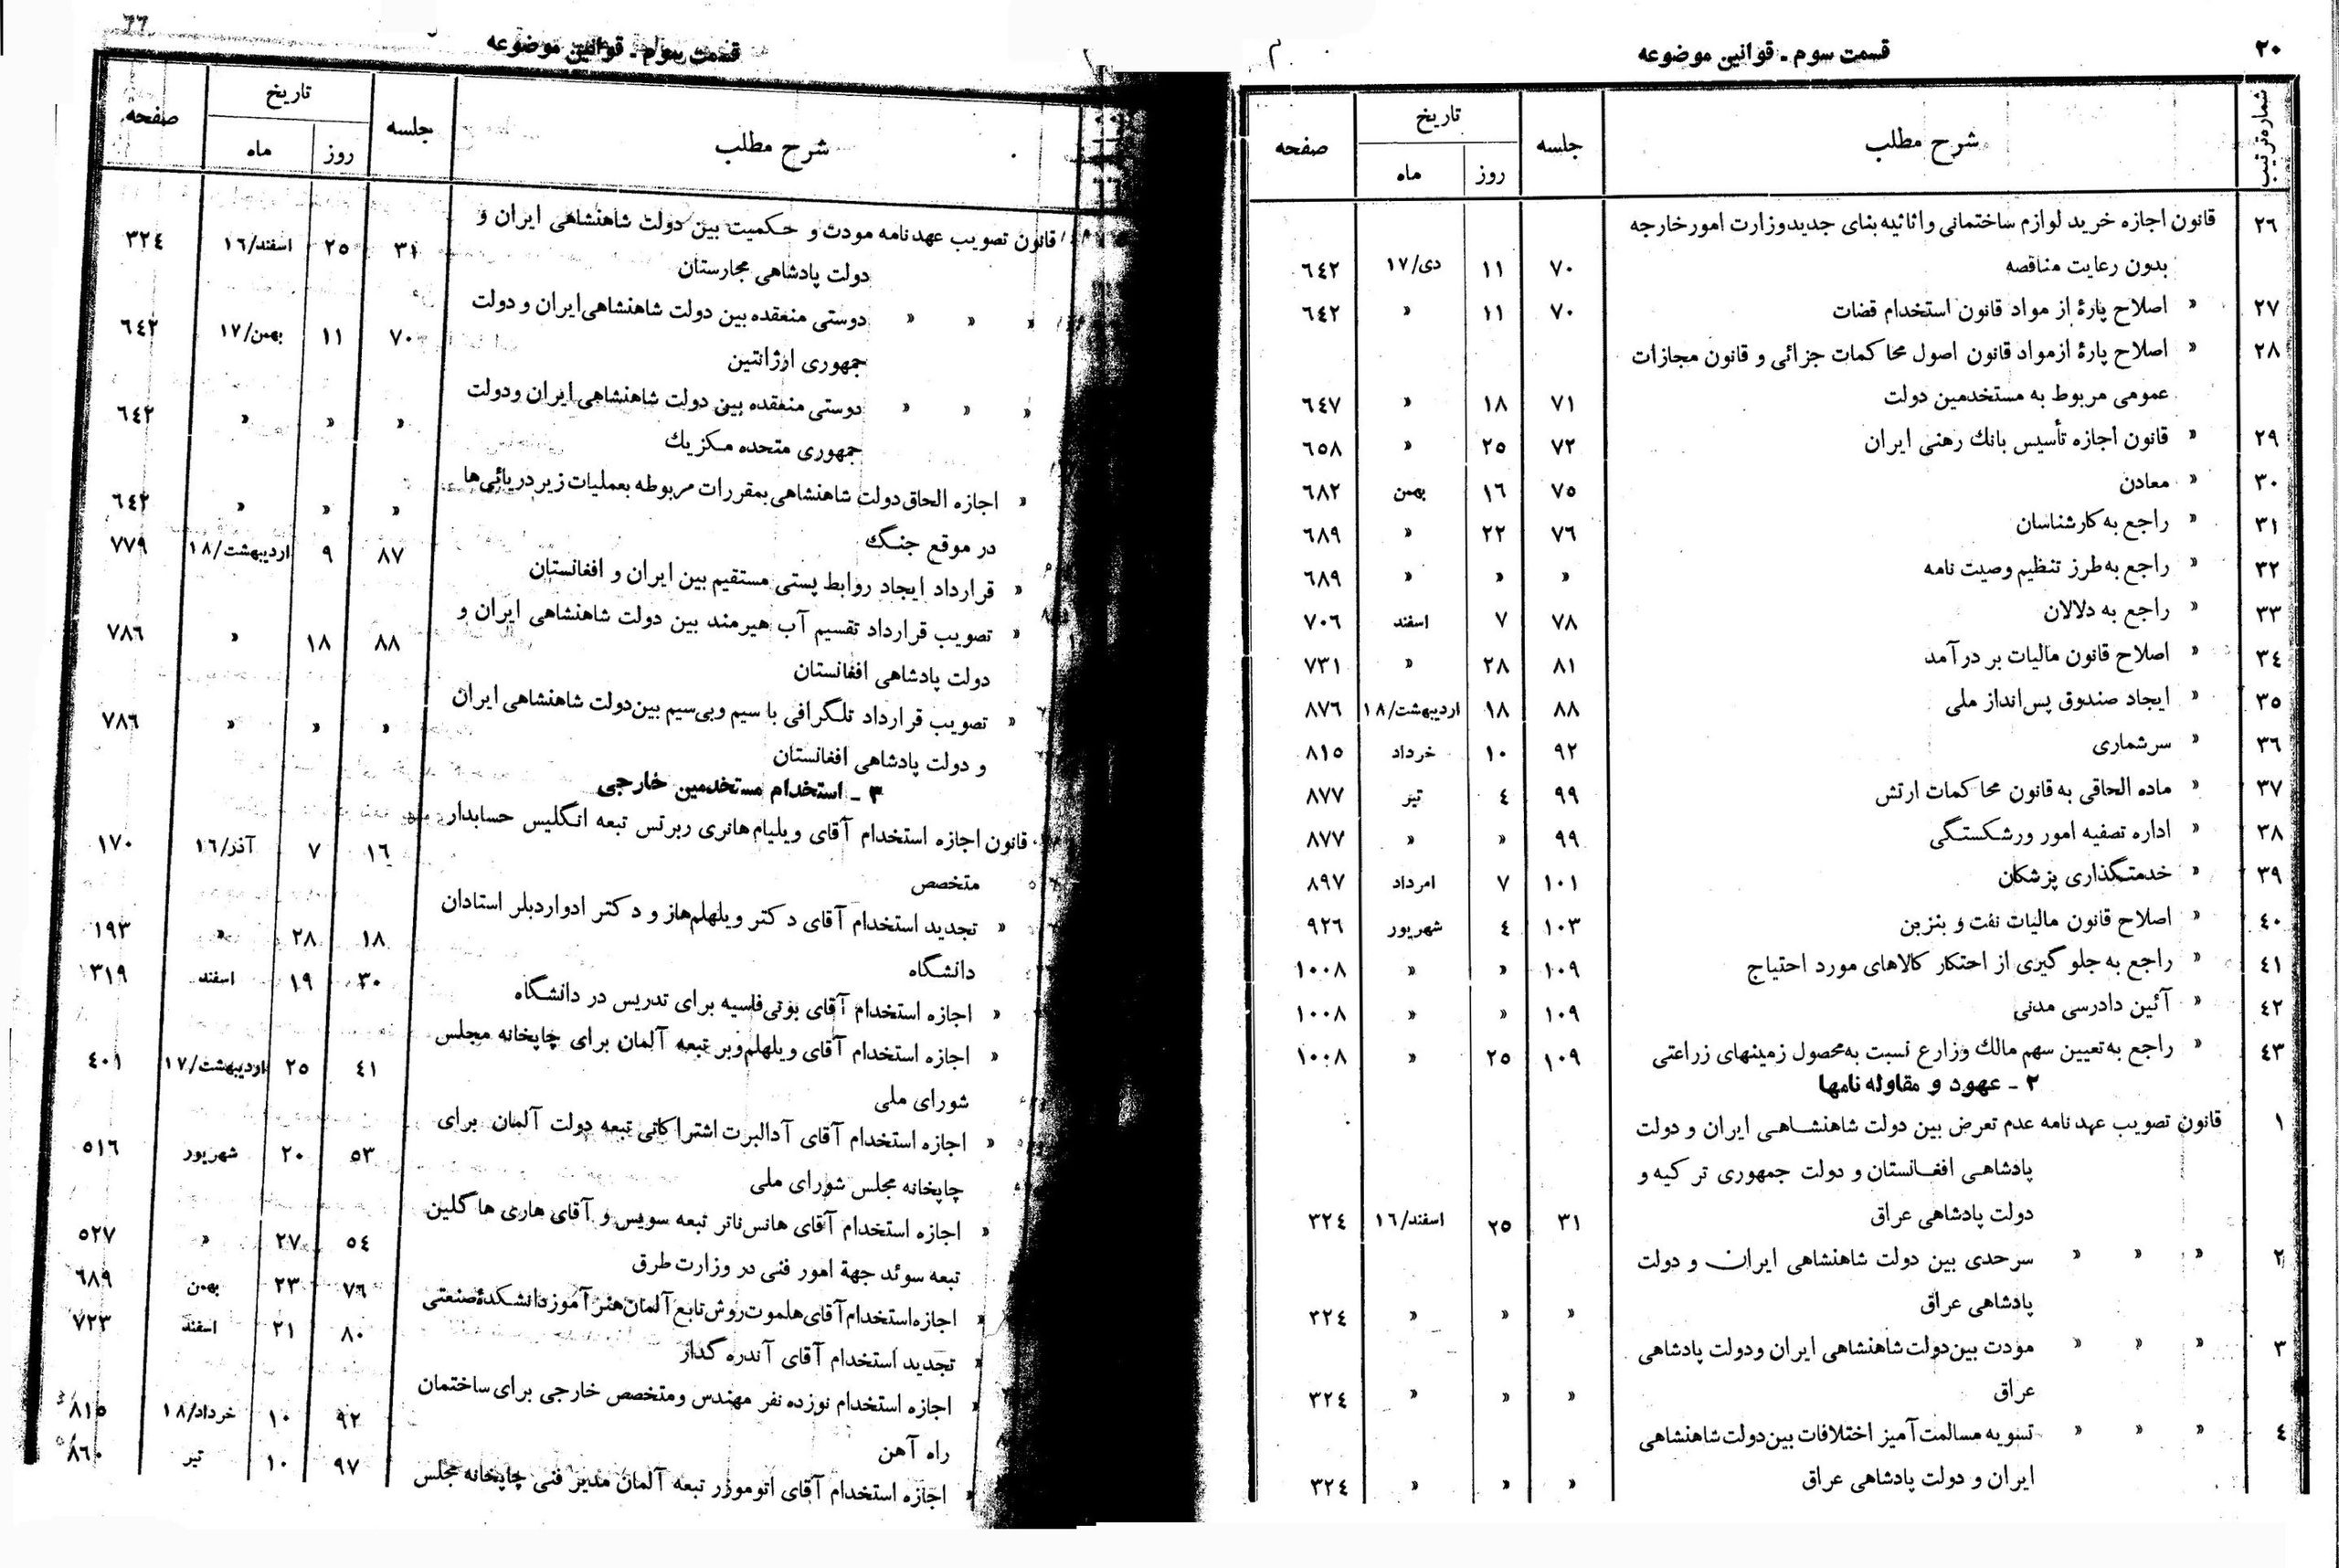 ۲۰
قسمت سوم ـ قوانین موضوعه
شماره ترتیب شرح مطلب جلسه تاریخ صفحه
روز ماه
۲٦ قانون اجازه خرید لوازم ساختمانی و اثاثیه بنای جدید وزارت امور خارجه
بدون رعایت مناقصه ۷۰ ۱۱ دی/۱۷ ٦٤۲
۲۷ » اصلاح پارهٔ از مواد قانون استخدام قضات ۷۰ ۱۱ » ٦٤۲
۲۸ » اصلاح پارهٔ ازمواد قانون اصول محاکمات جزائی و قانون مجازات
عمومی مربوط به مستخدمین دولت ۷۱ ۱۸ » ٦٤۷
۲۹ » قانون اجازه تأسیس بانك رهنی ایران ۷۲ ۲۵ » ٦۵۸
۳۰ » معادن ۷۵ ۱٦ بهمن ٦۸۲
۳۱ » راجع به کارشناسان ۷٦ ۲۲ » ٦۸۹
۳۲ » راجع به طرز تنظیم وصیت نامه » » » ٦۸۹
۳۳ » راجع به دلالان ۷۸ ۷ اسفند ۷۰٦
۳٤ » اصلاح قانون مالیات بر درآمد ۸۱ ۲۸ » ۷۳۱
۳۵ » ایجاد صندوق پس‌انداز ملی ۸۸ ۱۸ اردیبهشت/۱۸ ۸۷٦
۳٦ » سرشماری ۹۲ ۱۰ خرداد ۸۱۵
۳۷ » ماده الحاقی به قانون محاکمات ارتش ۹۹ ٤ تیر ۸۷۷
۳۸ » اداره تصفیه امور ورشکستگی ۹۹ » » ۸۷۷
۳۹ » خدمتگذاری پزشکان ۱۰۱ ۷ امرداد ۸۹۷
٤۰ » اصلاح قانون مالیات نفت و بنزین ۱۰۳ ٤ شهریور ۹۲٦
٤۱ » راجع به جلوگیری از احتکار کالاهای مورد احتیاج ۱۰۹ » » ۱۰۰۸
٤۲ » آئین دادرسی مدنی ۱۰۹ » » ۱۰۰۸
٤۳ » راجع به تعیین سهم مالك وزارع نسبت به محصول زمینهای زراعتی ۱۰۹ ۲۵ » ۱۰۰۸
۲ - عهود و مقاوله نامها
۱ قانون تصویب عهدنامه عدم تعرض بین دولت شاهنشاهی ایران و دولت
پادشاهی افغانستان و دولت جمهوری ترکیه و
دولت پادشاهی عراق ۳۱ ۲۵ اسفند/۱٦ ۳۲٤
۲ » » » سرحدی بین دولت شاهنشاهی ایران و دولت
پادشاهی عراق » » » ۳۲٤
۳ » » » مودت بین دولت شاهنشاهی ایران ودولت پادشاهی
عراق » » » ۳۲٤
٤ » » » تسویه مسالمت آمیز اختلافات بین دولت شاهنشاهی
ایران و دولت پادشاهی عراق » » » ۳۲٤
قسمت سوم ـ قوانین موضوعه
شرح مطلب جلسه تاریخ صفحه
روز ماه
قانون تصویب عهدنامه مودت و حکمیت بین دولت شاهنشاهی ایران و ۳۱ ۲۵ اسفند/۱٦ ۳۲٤
دولت پادشاهی مجارستان
» » » دوستی منعقده بین دولت شاهنشاهی ایران و دولت ۷۰ ۱۱ بهمن/۱۷ ٦٤۲
جمهوری ارژانتین
» » » دوستی منعقده بین دولت شاهنشاهی ایران ودولت » » » ٦٤۲
جمهوری متحده مکزیك
» اجازه الحاق دولت شاهنشاهی بمقررات مربوطه بعملیات زیردریائی‌ها » » » ٦٤۲
در موقع جنگ
» قرارداد ایجاد روابط پستی مستقیم بین ایران و افغانستان ۸۷ ۹ اردیبهشت/۱۸ ۷۷۹
» تصویب قرارداد تقسیم آب هیرمند بین دولت شاهنشاهی ایران و ۸۸ ۱۸ » ۷۸٦
دولت پادشاهی افغانستان
» تصویب قرارداد تلگرافی با سیم وبی‌سیم بین دولت شاهنشاهی ایران » » » ۷۸٦
و دولت پادشاهی افغانستان
۳ ـ استخدام مستخدمین خارجی
قانون اجازه استخدام آقای ویلیام هانری ربرتس تبعه انگلیس حسابدار ۱٦ ۷ آذر/۱٦ ۱۷۰
متخصص
» تجدید استخدام آقای دکتر ویلهلم هاز و دکتر ادواردبلر استادان ۱۸ ۲۸ » ۱۹۳
دانشگاه
» اجازه استخدام آقای بوتی فاسیه برای تدریس در دانشگاه ۳۰ ۱۹ اسفند ۳۱۹
» اجازه استخدام آقای ویلهلم وبر تبعه آلمان برای چاپخانه مجلس ٤۱ ۲۵ اردیبهشت/۱۷ ٤۰۱
شورای ملی
» اجازه استخدام آقای آدالبرت اشتراکاتی تبعه دولت آلمان برای ۵۳ ۲۰ شهریور ۵۱٦
چاپخانه مجلس شورای ملی
» اجازه استخدام آقای هانس ناتر تبعه سویس و آقای هاری هاگلین ۵٤ ۲۷ » ۵۲۷
تبعه سوئد جهة امور فنی در وزارت طرق
» اجازه استخدام آقای هلموت روش تابع آلمان هنرآموز دانشکدهٔ صنعتی ۷٦ ۲۳ بهمن ٦۸۹
» تجدید استخدام آقای آندره گدار ۸۰ ۲۱ اسفند ۷۲۳
» اجازه استخدام نوزده نفر مهندس ومتخصص خارجی برای ساختمان ۹۲ ۱۰ خرداد/۱۸ ۸۱۵
راه آهن
» اجازه استخدام آقای اتوموزر تبعه آلمان مدیر فنی چاپخانه مجلس ۹۷ ۱۰ تیر ۸٦۰